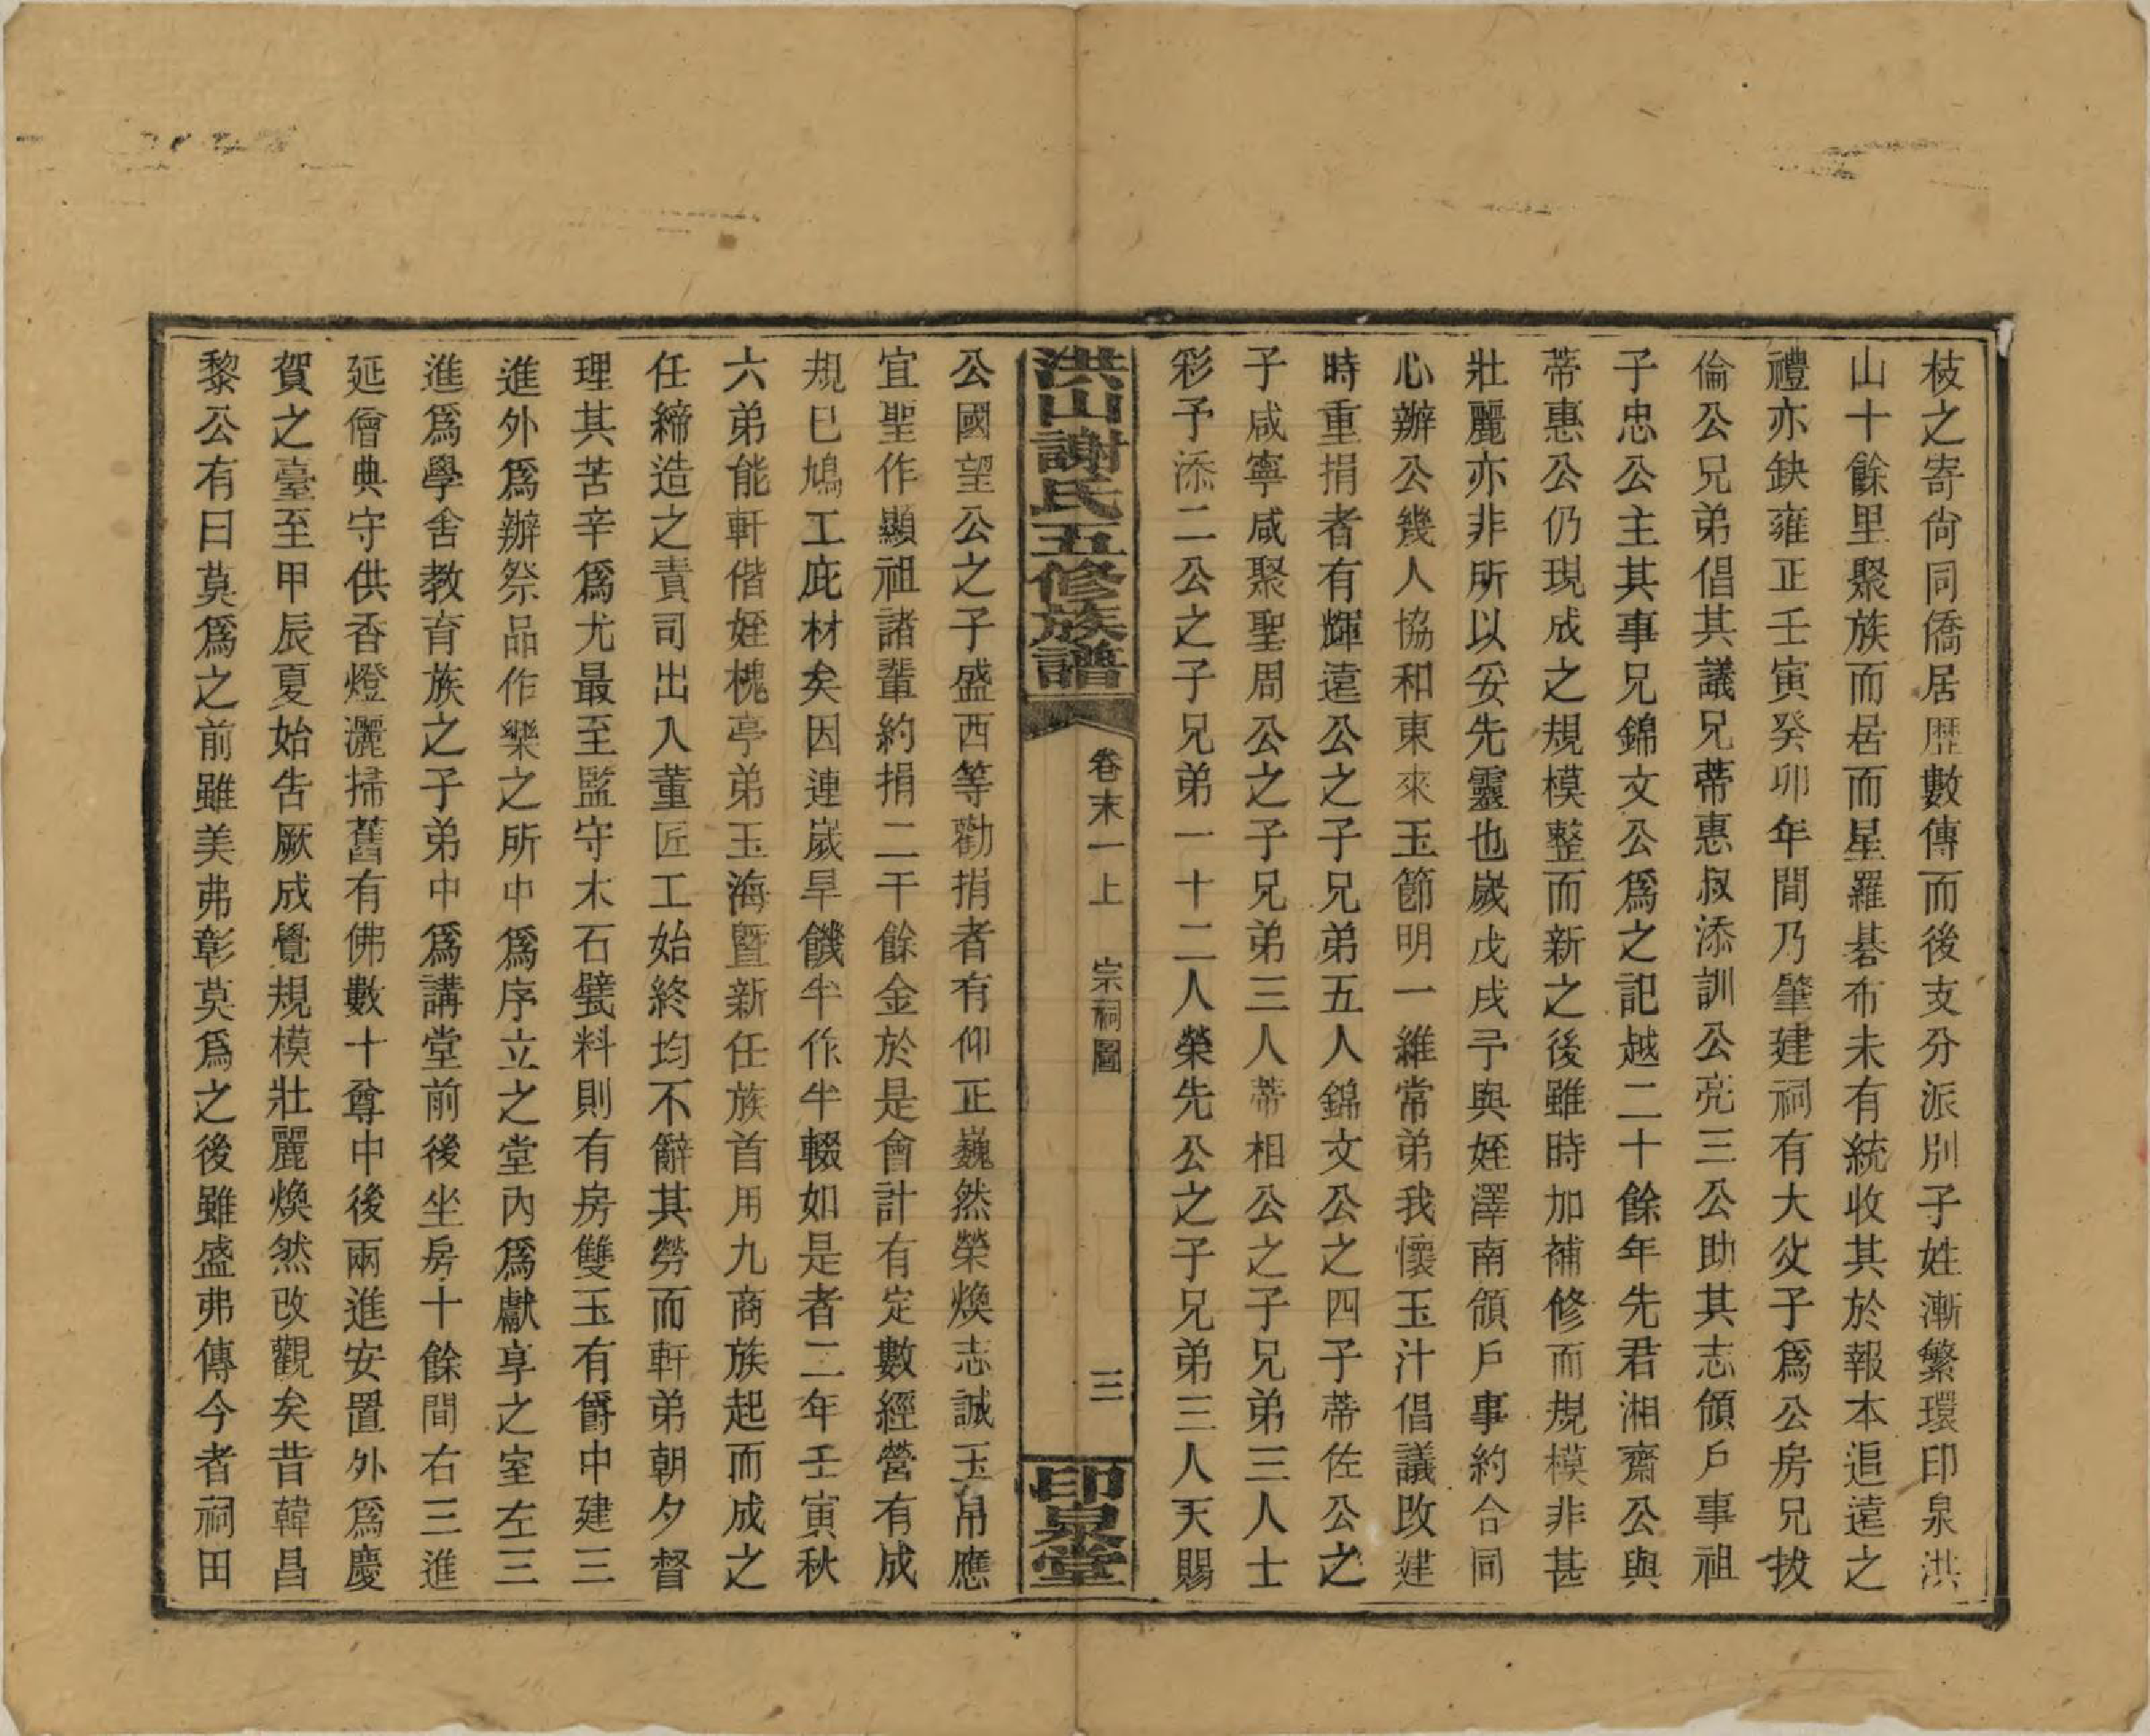 枝之寄尙同僑居歷數傳而後支分派別子姓漸繁環印泉洪
山十餘里聚族而居而星羅碁布未有統收其於報本追遠之
禮亦缺雍正壬寅癸卯年間乃肇建祠有大父子爲公房兄拔
倫公兄弟倡其議兄蒂惠叔添訓公亮三公助其志領戶事祖
子忠公主其事兄錦文公爲之記越二十餘年先君湘齋公與
蒂惠公仍現成之規模整而新之後雖時加補修而規模非甚
壯麗亦非所以妥先靈也歲戊戌予與姪澤南領戶事約合同
心辦公幾人協和東來玉節明一維常弟我懷玉汁倡議改建
時重捐者有輝遠公之子兄弟五人錦文公之四子蒂佐公之
子咸寧咸聚聖周公之子兄弟三人蒂相公之子兄弟三人士
彩予添二公之子兄弟一十二人榮先公之子兄弟三人天賜
洪山謝氏五修族譜
卷末一上　宗祠圖
三
印泉堂
公國望公之子盛西等勸捐者有仰正巍然榮煥志誠玉帛應
宜聖作顯祖諸輩約捐二千餘金於是會計有定數經營有成
規已鳩工庇材矣因連歲旱饑半作半輟如是者二年壬寅秋
六弟能軒偕姪槐亭弟玉海曁新任族首用九商族起而成之
任締造之責司出入董匠工始終均不辭其勞而軒弟朝夕督
理其苦辛爲尤最至監守木石甓料則有房雙玉有爵中建三
進外爲辦祭品作樂之所中爲序立之堂內爲獻享之室左三
進爲學舍教育族之子弟中爲講堂前後坐房十餘間右三進
延僧典守供香燈灑掃舊有佛數十尊中後兩進安置外爲慶
賀之臺至甲辰夏始告厥成覺規模壯麗煥然改觀矣昔韓昌
黎公有曰莫爲之前雖美弗彰莫爲之後雖盛弗傳今者祠田